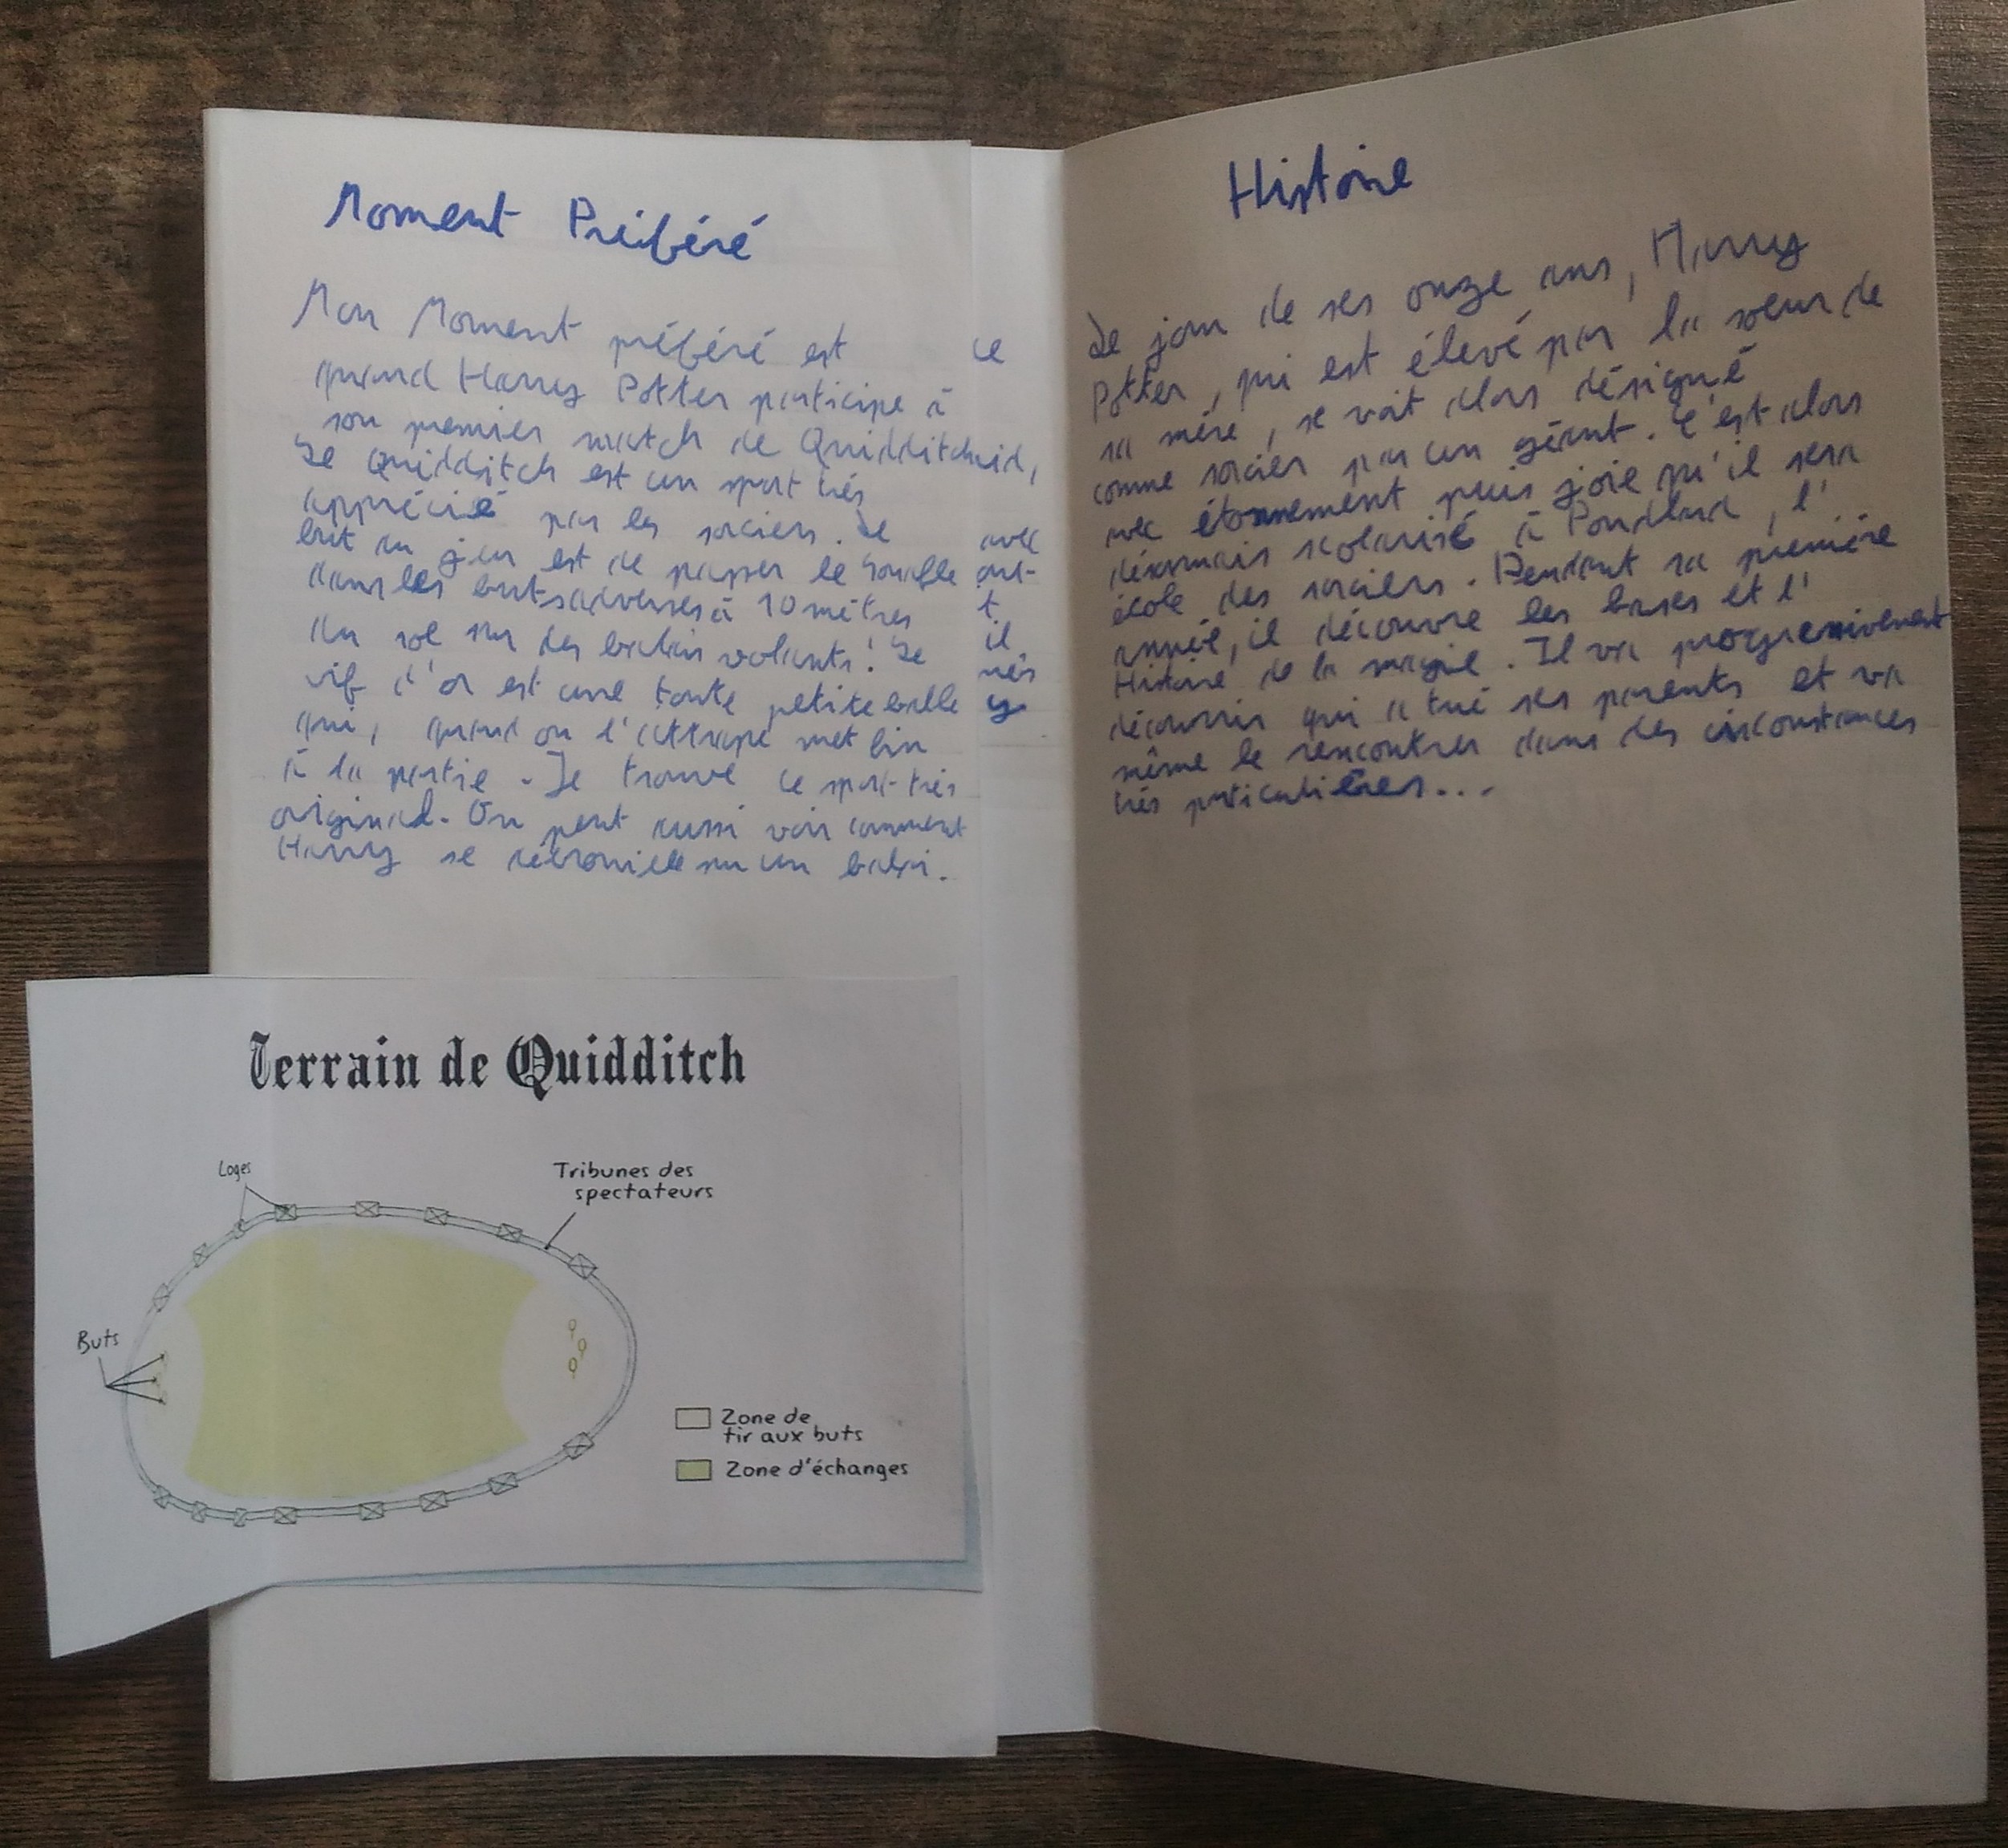 Moment Préféré
Mon Moment préféré est
quand Harry Potter participe à
son premier match de Quidditch
Le Quidditch est un sport très
apprécié par les sorciers. Le
but du jeu est de passer le Souafle
dans les buts adverses à 10 mètres
du sol sur des balais volants! Le
vif d'or est une toute petite balle
qui, quand on l'attrape met fin
à la partie. Je trouve ce sport très
original. On peut aussi voir comment
Harry se débrouille sur un balai.
ce
avec
t
il
nés
y
Terrain de Quidditch
Loges
Tribunes des
spectateurs
Buts
Zone de
tir aux buts
Zone d'échanges
Histoire
Le jour de ses onze ans, Harry
Potter, qui est élevé par la soeur de
sa mère, se voit alors désigné
comme sorcier par un géant. C'est alors
avec étonnement puis joie qu'il sera
désormais scolarisé à Poudlard, l'
école des sorciers. Pendant sa première
année, il découvre les bases et l'
Histoire de la magie. Il va progressivement
découvrir qui a tué ses parents et va
même le rencontrer dans des circonstances
très particulières...